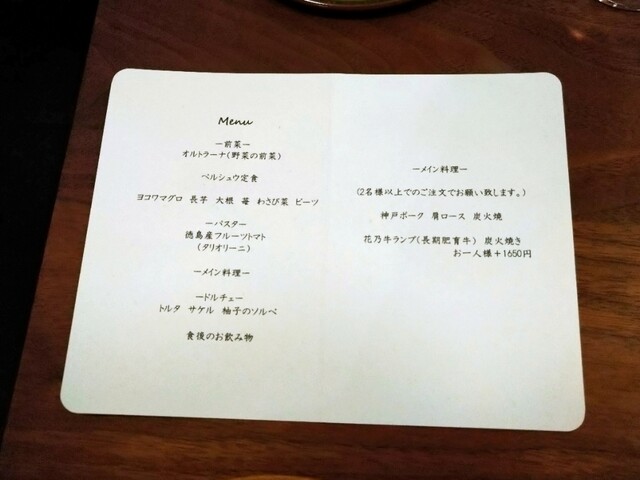 Menu
ー前菜ー
オルトラーナ(野菜の前菜)
ペルシュウ定食
ヨコワマグロ 長芋 大根 苺 わさび菜 ビーツ
ーパスター
徳島産フルーツトマト
(タリオリーニ)
ーメイン料理ー
ードルチェー
トルタ サケル 柚子のソルベ
食後のお飲み物
ーメイン料理ー
(2名様以上でのご注文でお願い致します。)
神戸ポーク 肩ロース 炭火焼
花乃牛ランプ(長期肥育牛) 炭火焼き
お一人様+1650円